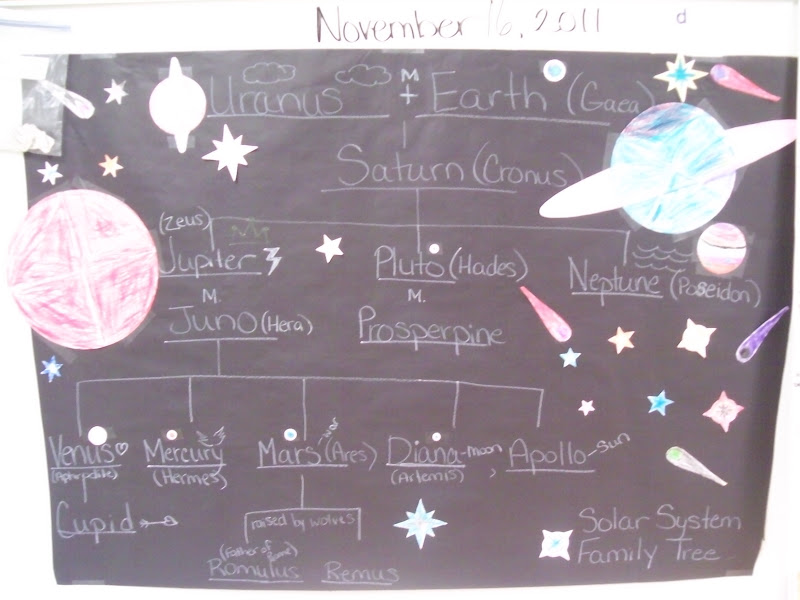 November 16, 2011
d
Uranus M + Earth (Gaea)
Saturn (Cronus)
(Zeus)
Jupiter Pluto (Hades) Neptune (Poseidon)
M. M.
Juno (Hera) Prosperpine
Venus Mercury Mars (Ares) war Diana-moon, Apollo-sun
(Aphrodite) (Hermes) (Artemis)
Cupid
raised by wolves
(Father of Rome)
Romulus Remus
Solar System
Family Tree